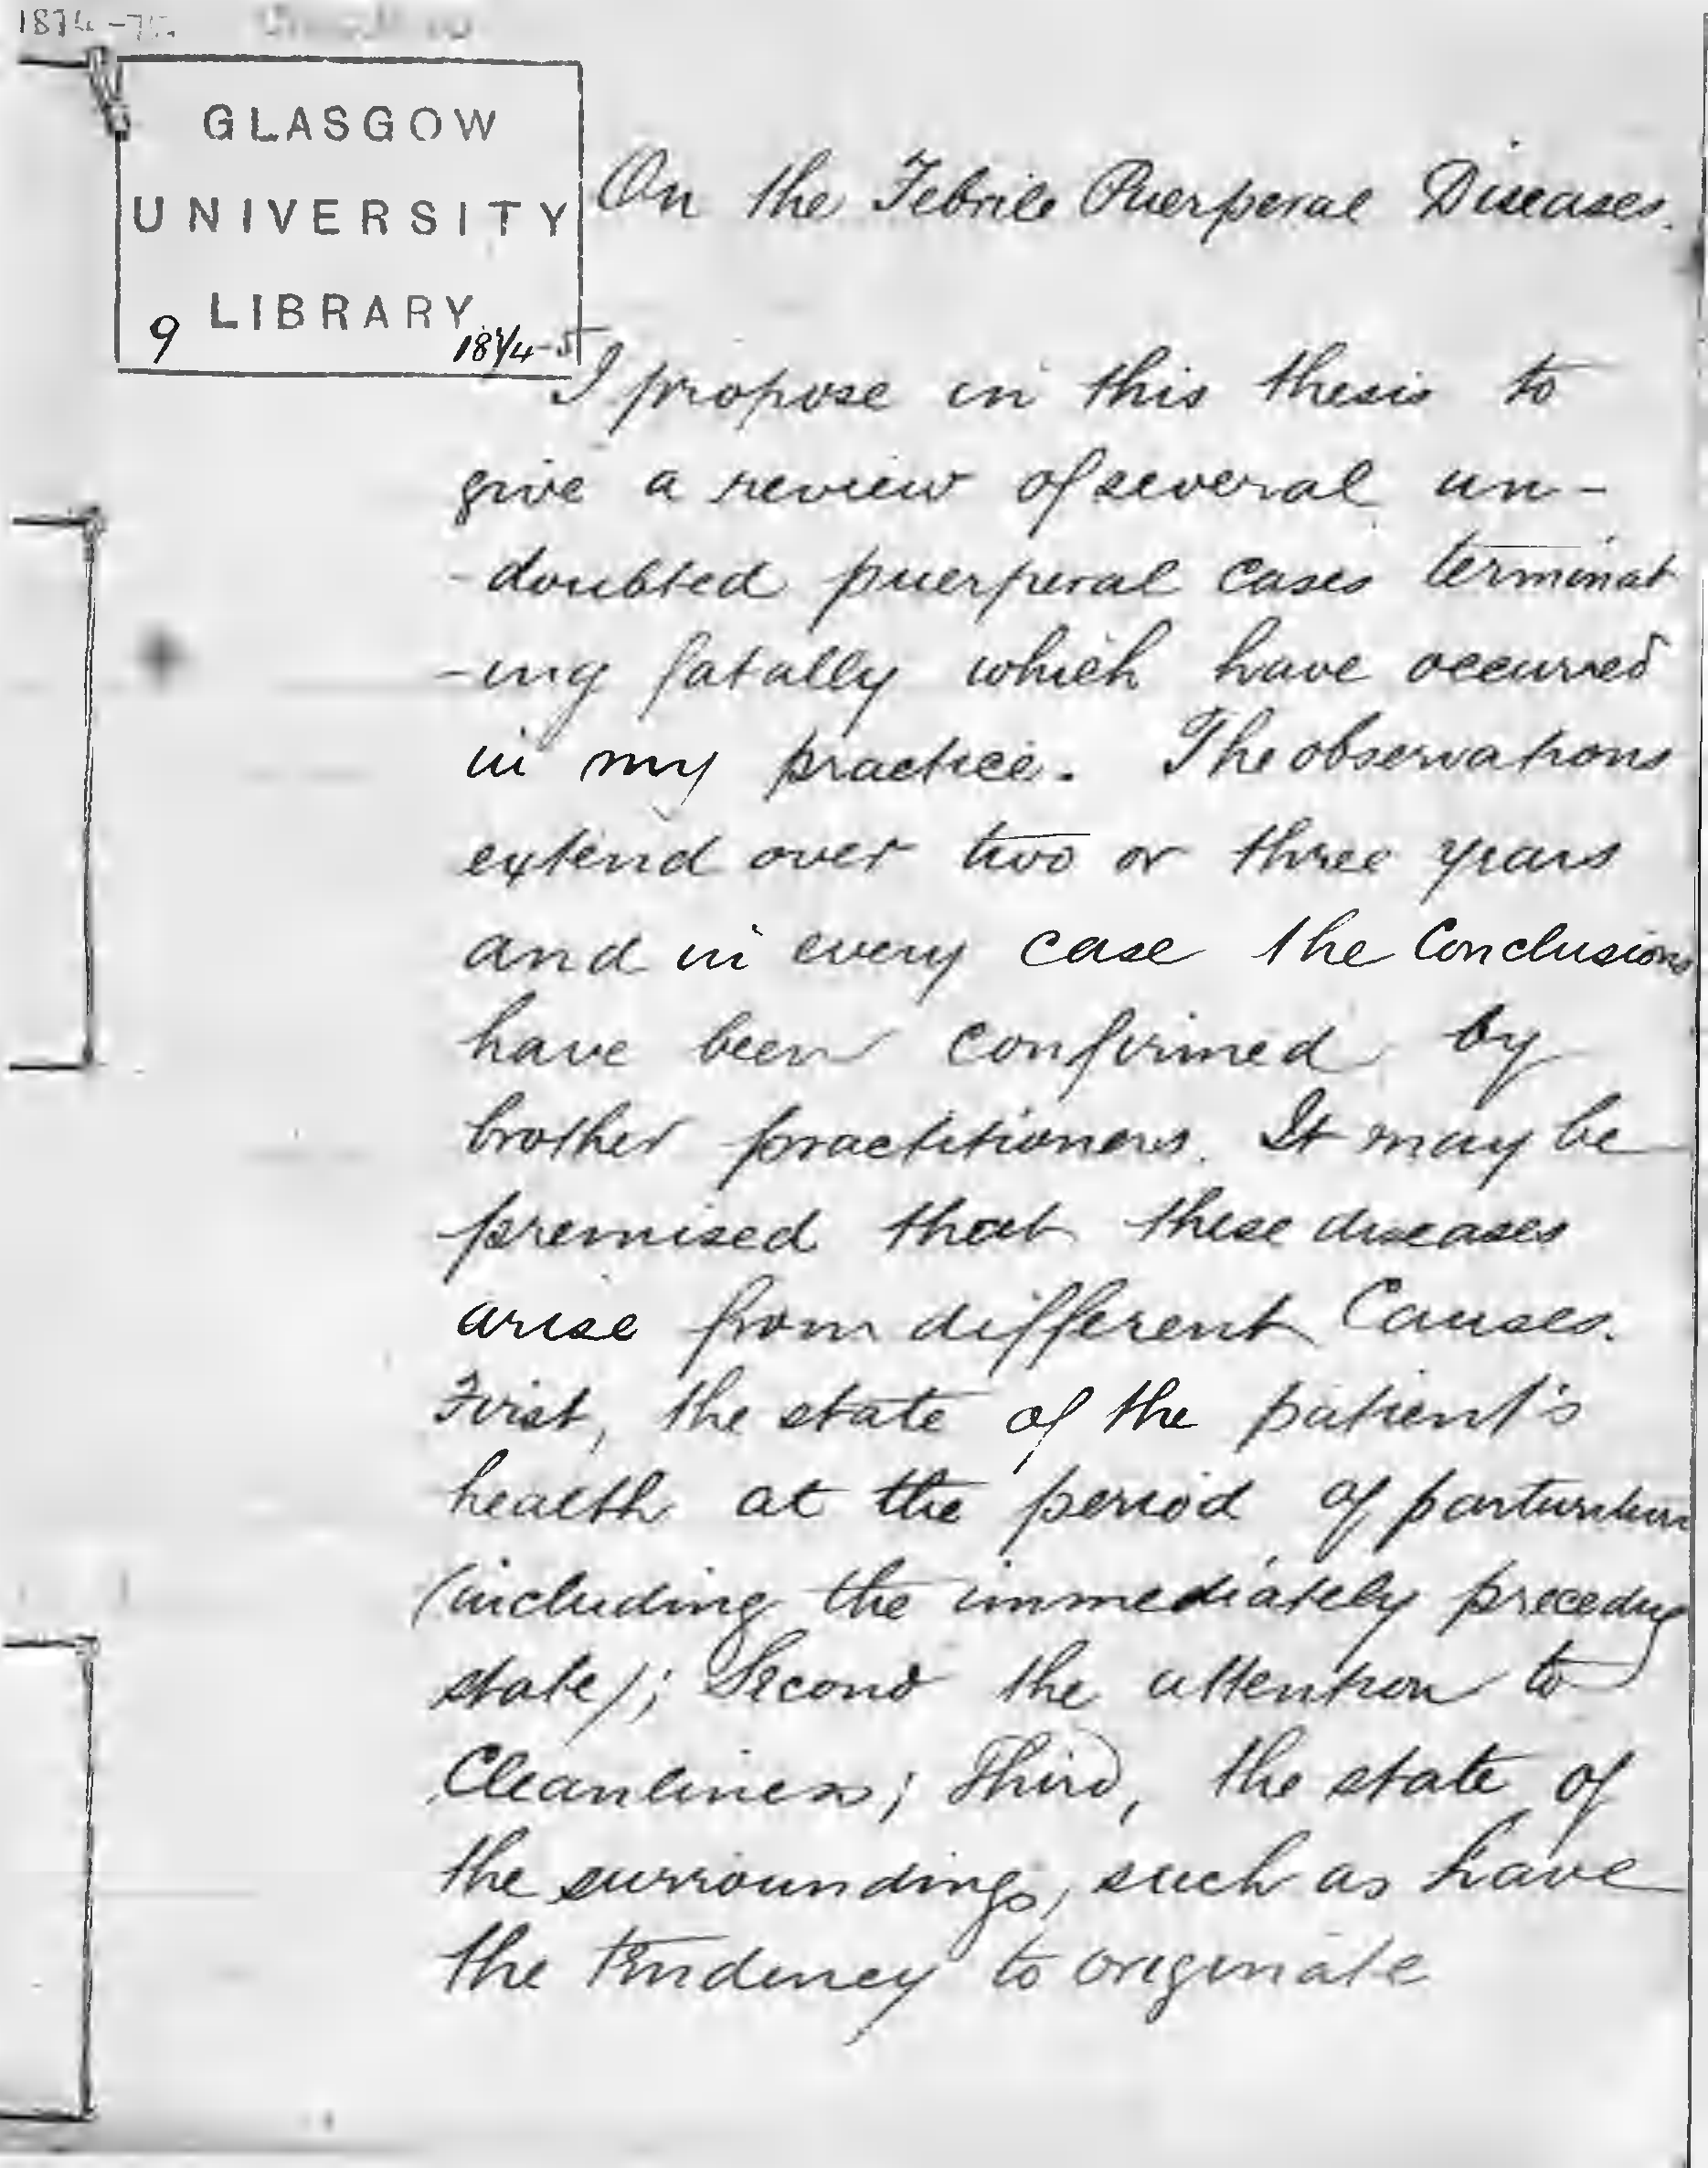 1874-75.
GLASGOW
UNIVERSITY
LIBRARY
9 1874-5
On the Febrile Puerperal Diseases.
I propose in this thesis to
give a review of several un-
-doubted puerperal cases terminat
-ing fatally which have occurred
in my practice. The observations
extend over two or three years
and in every case the Conclusions
have been confirmed by
brother practitioners. It may be
premised that these diseases
arise from different Causes.
First, the state of the patient's
health at the period of parturition
(including the immediately preceding
state); Second the attention to
Cleanliness; Third, the state of
the surroundings, such as have
the tendency to originate